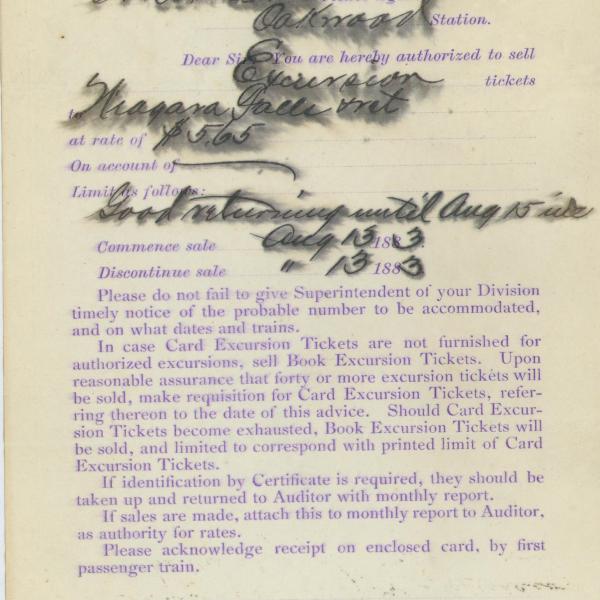 Oakwood Station.
Dear Sir: You are hereby authorized to sell
Excursion tickets
to Niagara Falls & ret
at rate of $5.65
On account of
Limit as follows:
Good returning until Aug 15 inc
Commence sale Aug 13 1883.
Discontinue sale " 13 1883
Please do not fail to give Superintendent of your Division
timely notice of the probable number to be accommodated,
and on what dates and trains.
In case Card Excursion Tickets are not furnished for
authorized excursions, sell Book Excursion Tickets. Upon
reasonable assurance that forty or more excursion tickets will
be sold, make requisition for Card Excursion Tickets, refer-
ring thereon to the date of this advice. Should Card Excur-
sion Tickets become exhausted, Book Excursion Tickets will
be sold, and limited to correspond with printed limit of Card
Excursion Tickets.
If identification by Certificate is required, they should be
taken up and returned to Auditor with monthly report.
If sales are made, attach this to monthly report to Auditor,
as authority for rates.
Please acknowledge receipt on enclosed card, by first
passenger train.